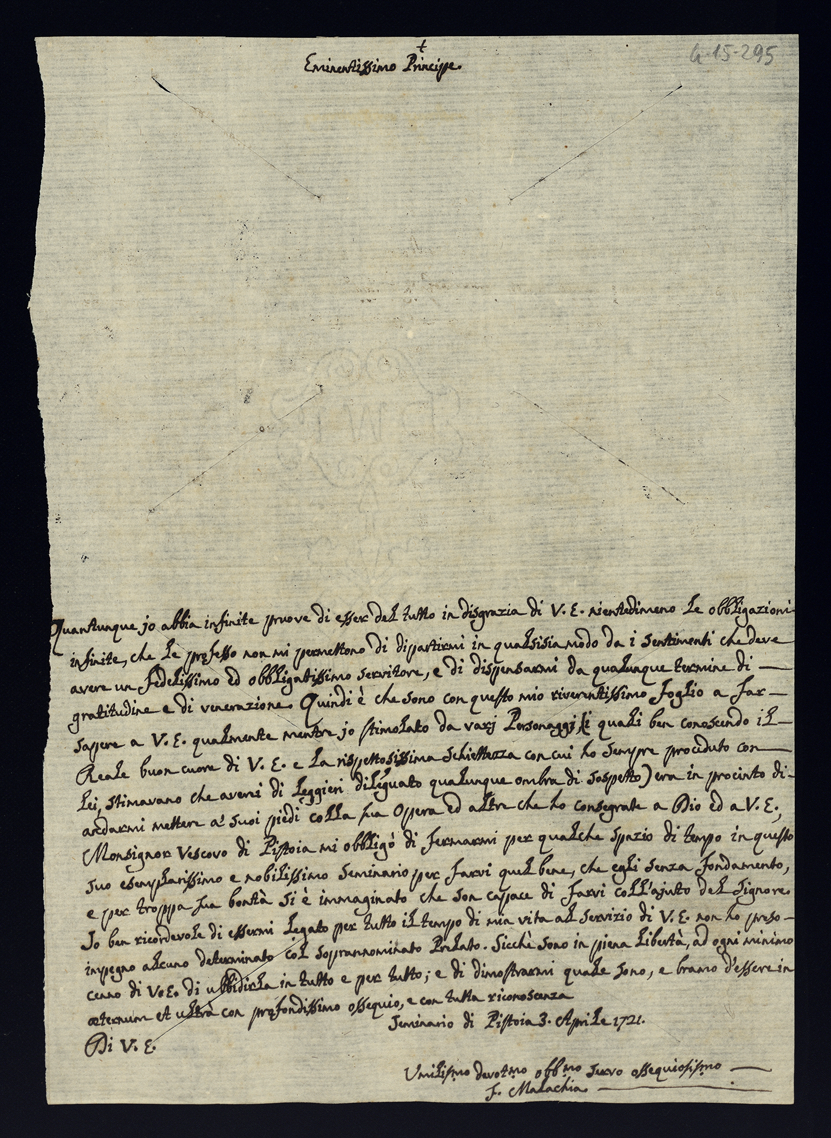 +
Eminentissimo Principe.
4-15-295
Quantunque jo abbia infinite pruove di esser del tutto in disgrazia di V. E. nientedimeno le obbligazioni
infinite, che le professo non mi permettono di dipartirmi in qualsisia modo da i sentimenti che deve
avere un fedelissimo ed obbligatissimo servitore, e di dispensarmi da qualunque termine di —
gratitudine e di venerazione. Quindi è che sono con questo mio riverentissimo foglio a far —
sapere a V. E. qualmente mentre jo stimolato da varj Personaggj (i quali ben conoscendo il —
Reale buon cuore di V. E. e la rispettosissima schiettezza con cui ho sempre proceduto con —
Lei, stimavano che averei di leggieri dileguato qualunque ombra di sospetto) era in procinto di-
andarmi mettere a' suoi piedi colla sua Opera ed altre che ho consegrate a Dio ed a V. E.,
Monsignor Vescovo di Pistoia mi obbligò di fermarmi per qualche spazio di tempo in questo
suo esemplarissimo e nobilissimo Seminario per farvi quel bene, che egli senza fondamento,
e per troppa sua bontà si è immaginato che son capace di farvi coll'ajuto del Signore.
Jo ben ricordevole di essermi legato per tutto il tempo di mia vita al servizio di V. E. non ho preso —
impegno alcuno determinato col soprannominato Prelato. Sicchè sono in piena libertà, ad ogni minimo
cenno di V. E. di ubbidirla in tutto e per tutto; e di dimostrarmi quale sono, e bramo d'essere in
æternum et ultra con profondissimo ossequio, e con tutta riconoscenza
Seminario di Pistoia 3. Aprile 1721.
Di V. E.
Umilissmo devotmo obbmo servo ossequiosissimo —
F. Malachia —